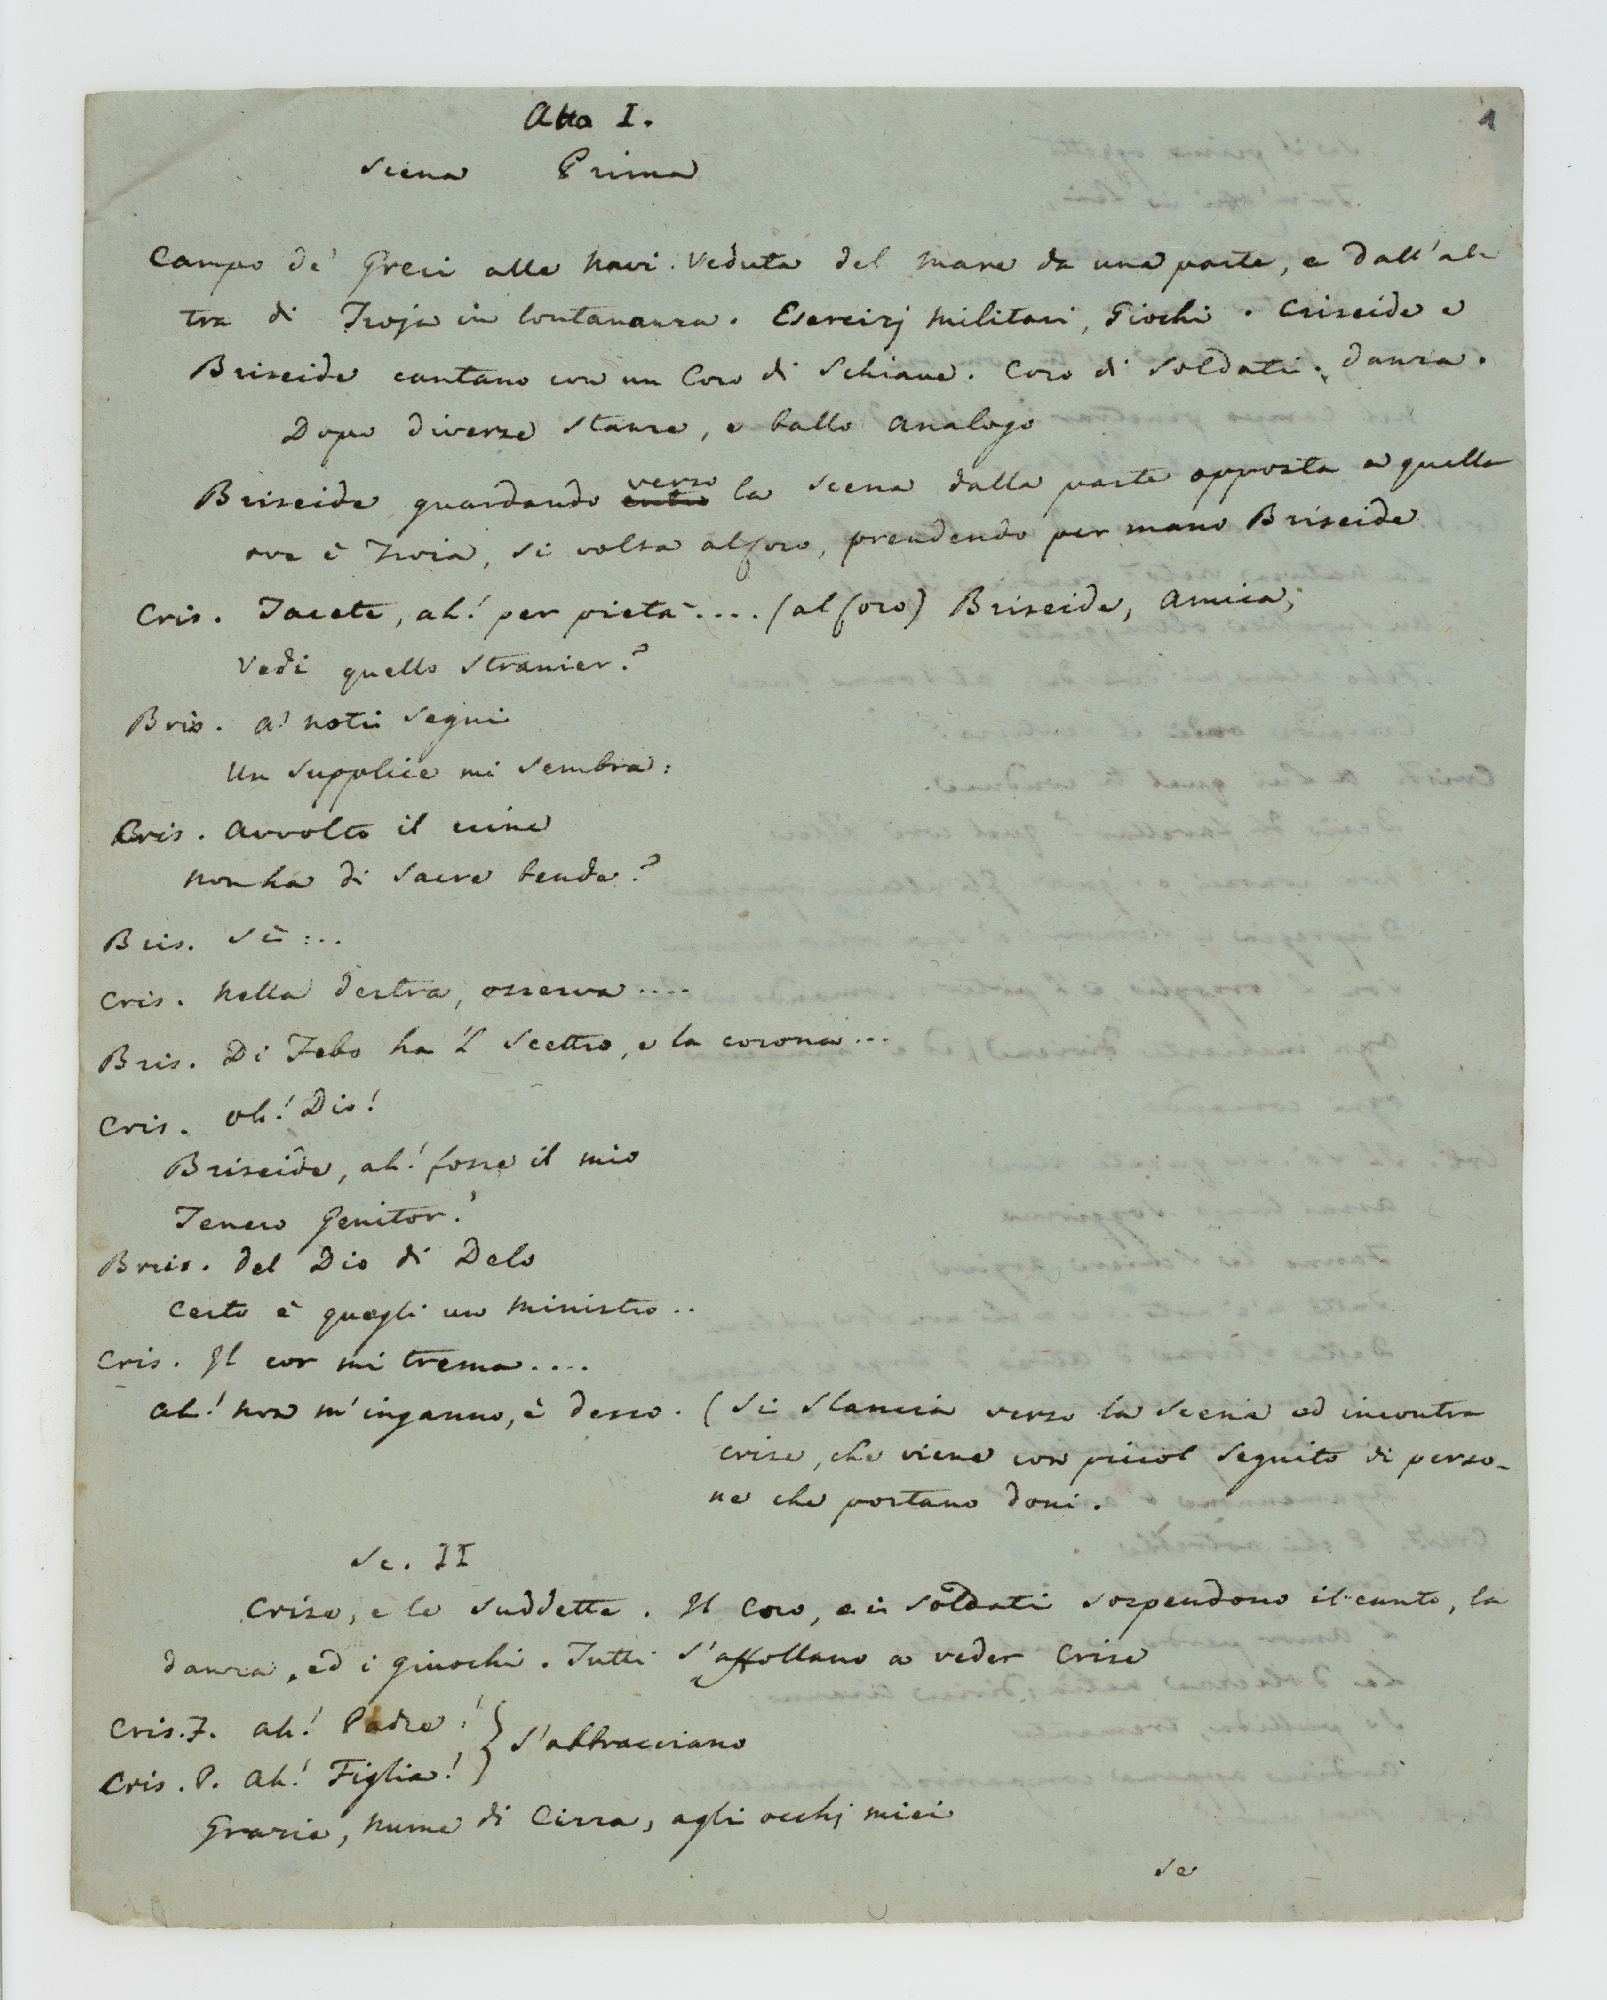 1
Atto I.
Scena Prima
Campo de' Greci alle Navi. Veduta del mare da una parte, e dall'al-
tra di Troja in lontananza. Esercizj Militari, Giochi. Criseide e
Briseide cantano con un Coro di Schiave. Coro di Soldati. Danza.
Dopo diverse stanze, e ballo analogo
Briseide guardando entro verso la scena dalla parte opposta a quella
ove è Troia, si volta al coro, prendendo per mano Briseide
Cris. Tacete, ah! per pietà.... (al coro) Briseide, Amica,
Vedi quello stranier?
Bris. A' noti segni
Un supplice mi sembra:
Cris. Avvolto il crine
Non ha di sacre bende?
Bris. Sì:..
Cris. Nella destra, osserva....
Bris. Di Febo ha 'l Scettro, e la corona...
Cris. Oh! Dio!
Briseide, ah! fosse il mio
Tenero Genitor!
Bris. Del Dio di Delo
Certo è quegli un Ministro..
Cris. Il cor mi trema....
Ah! non m'inganno, è desso. (Si slancia verso la scena ed incontra
Crise, che viene con picciol seguito di perso-
ne che portano doni.
Sc. II
Crise, e le suddette. Il Coro, e i Soldati sospendono il canto, la
danza, ed i giuochi. Tutti s'affollano a veder Crise
Cris. F. Ah! Padre! } s'abbracciano
Cris. P. Ah! Figlia!
Grazie, Nume di Cirra, agli occhj miei
se